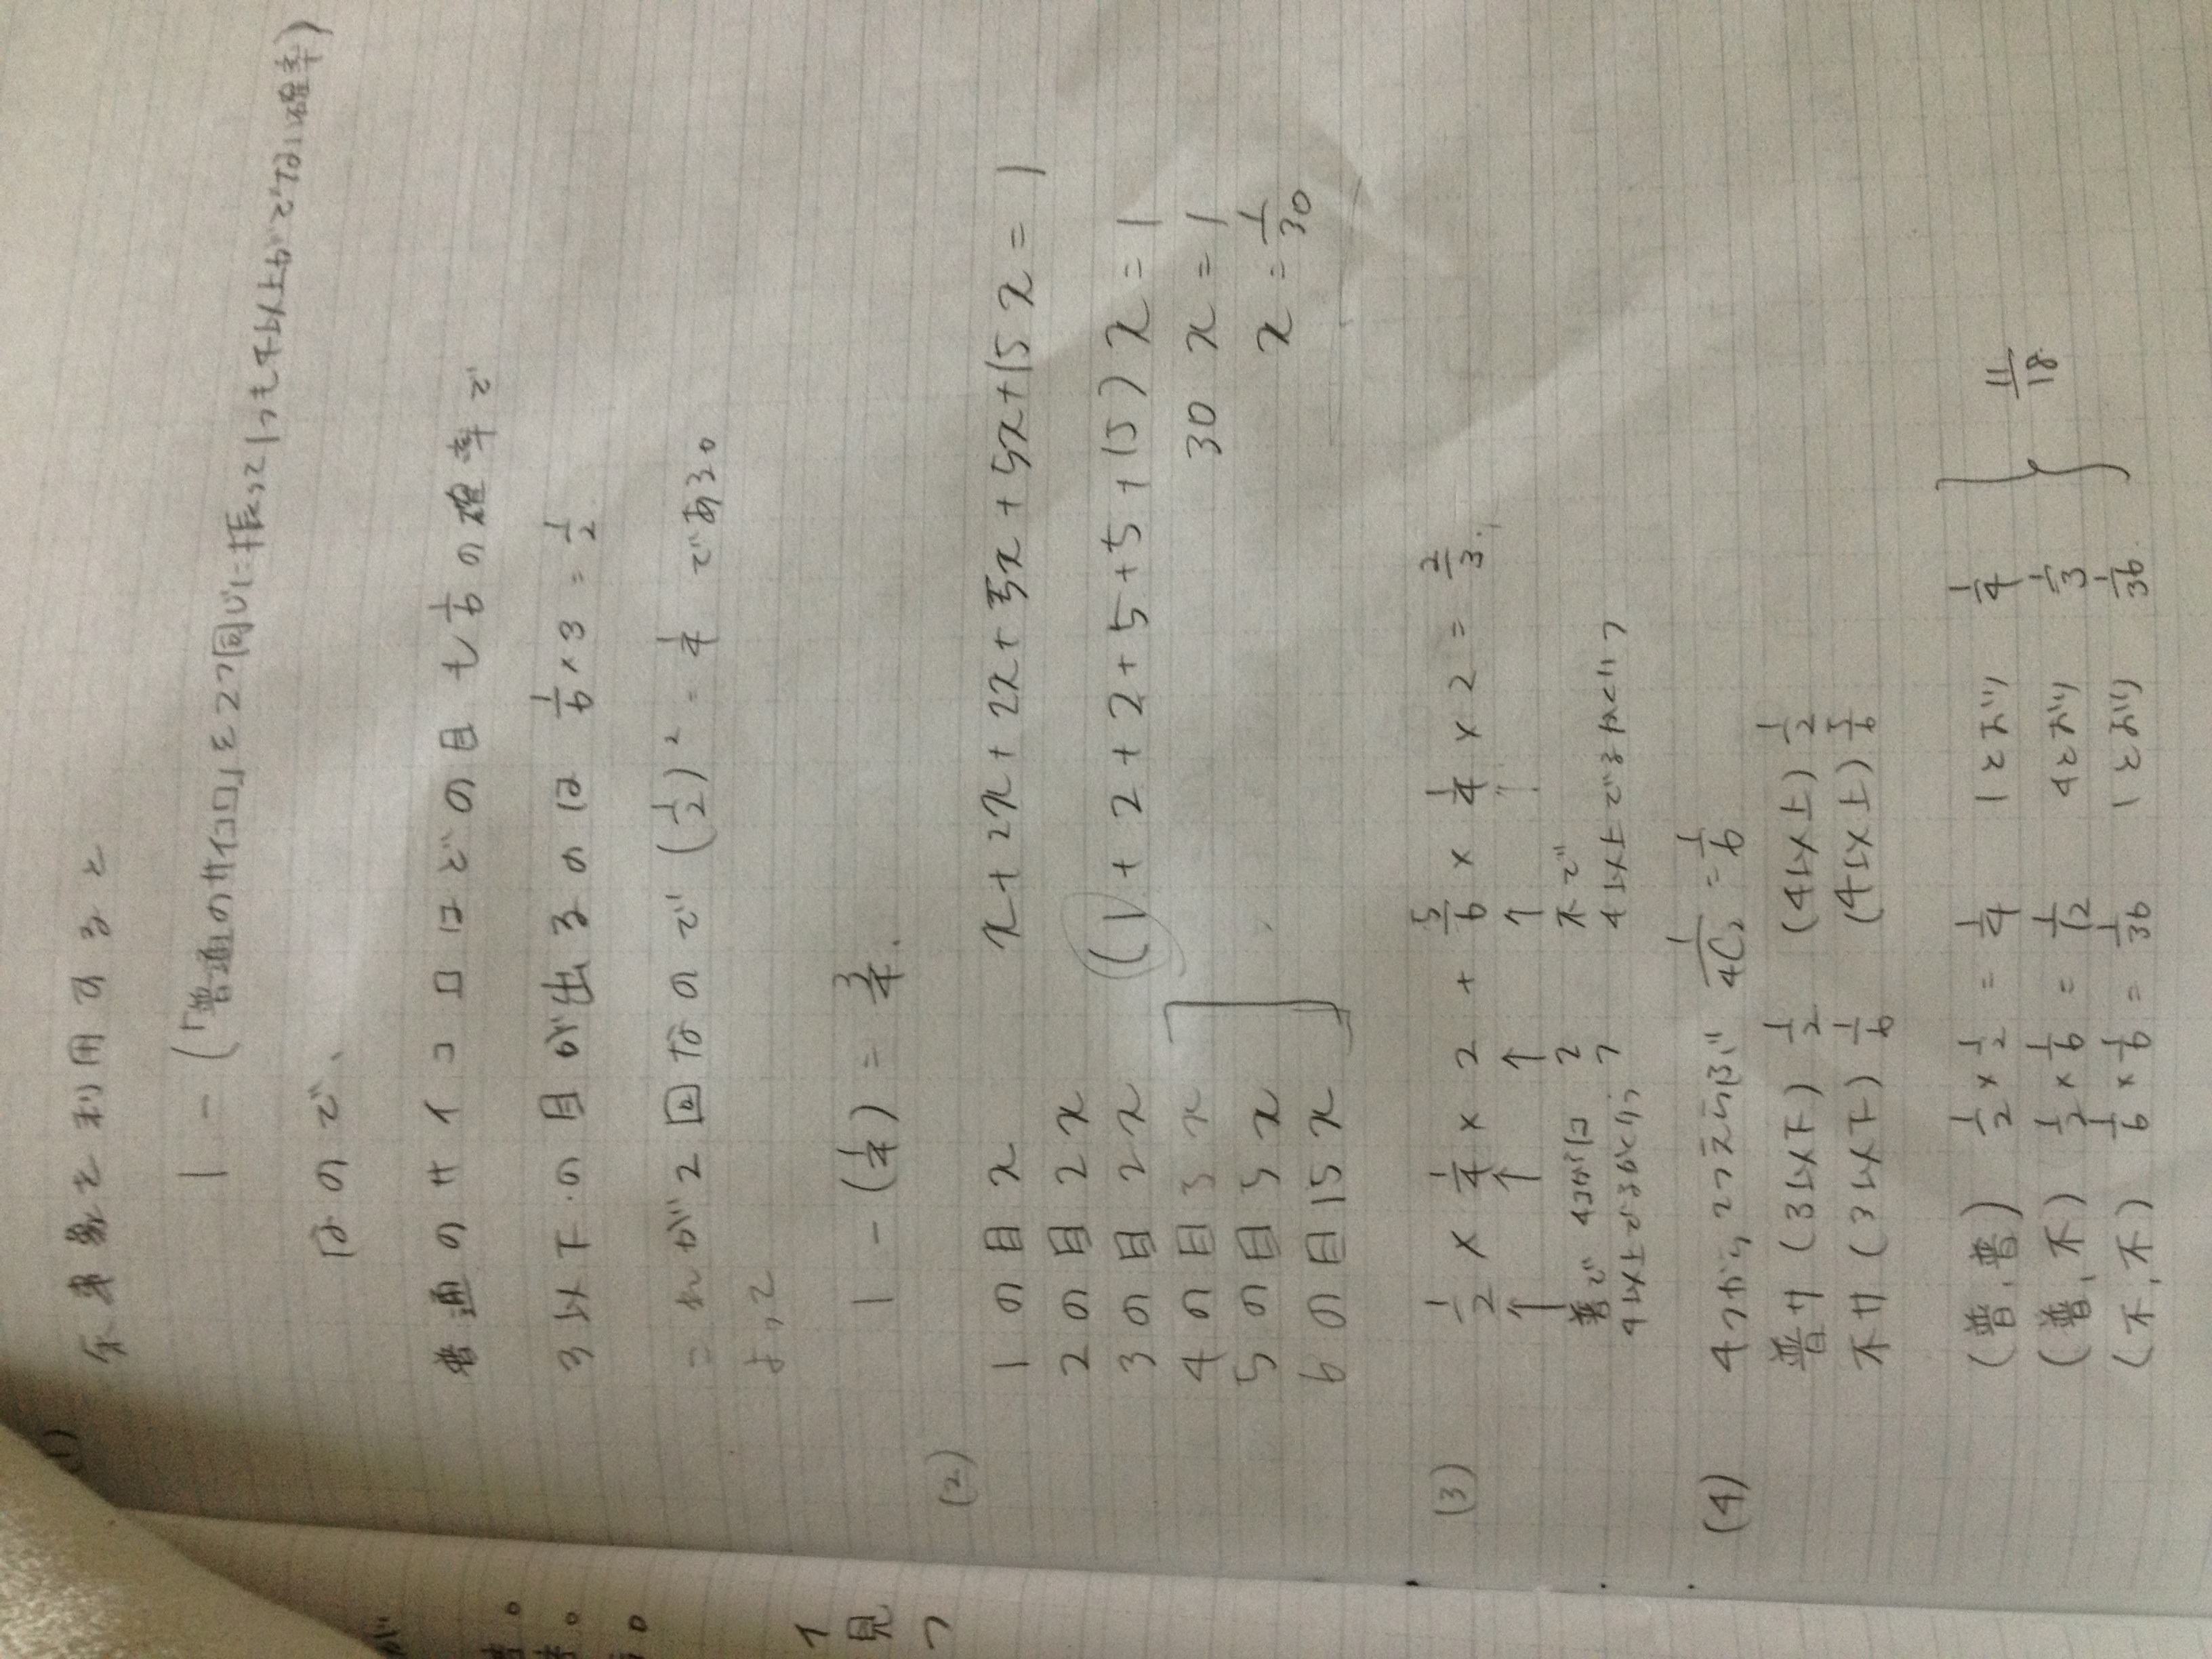 (1)
余事象を利用すると
1 - (「普通のサイコロ」を2つ同じに振って1つも4以上がでない確率)
なので、
普通のサイコロはどの目も 1/6 の確率で
3以下の目が出るのは 1/6 × 3 = 1/2
これが2回なので (1/2)² = 1/4 である。
よって
1 - (1/4) = 3/4.
(2)
1の目 x
2の目 2x
3の目 2x
4の目 5x
5の目 5x
6の目 15x
x + 2x + 2x + 5x + 5x + 15x = 1
(1 + 2 + 2 + 5 + 5 + 15) x = 1
30 x = 1
x = 1/30
(3) 1/2 × 1/4 × 2 + 5/6 × 1/4 × 2 = 2/3.
↑ ↑ ↑ ↑
普で 4コから1コ 2つ
4以上でるかくりつ
不で
4以上でるかくりつ
(4) 4つから、2つえらぶ 1/4C2 = 1/6
普サ (3以下) 1/2 (4以上) 1/2
不サ (3以下) 1/6 (4以上) 5/6
(普, 普) 1/2 × 1/2 = 1/4 1とおり 1/4
(普, 不) 1/2 × 1/6 = 1/12 4とおり 1/3
(不, 不) 1/6 × 1/6 = 1/36 1とおり 1/36
} 11/18
が
イ
見
つ